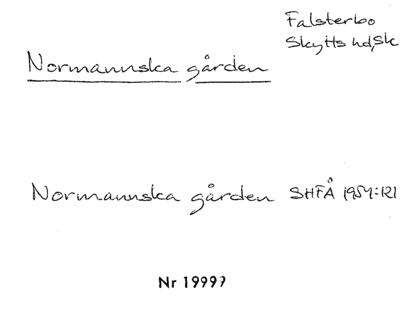 Falsterbo
Skytts hd, Sk
Normannska gården
Normannska gården SHFÅ 1954:121
Nr 19999